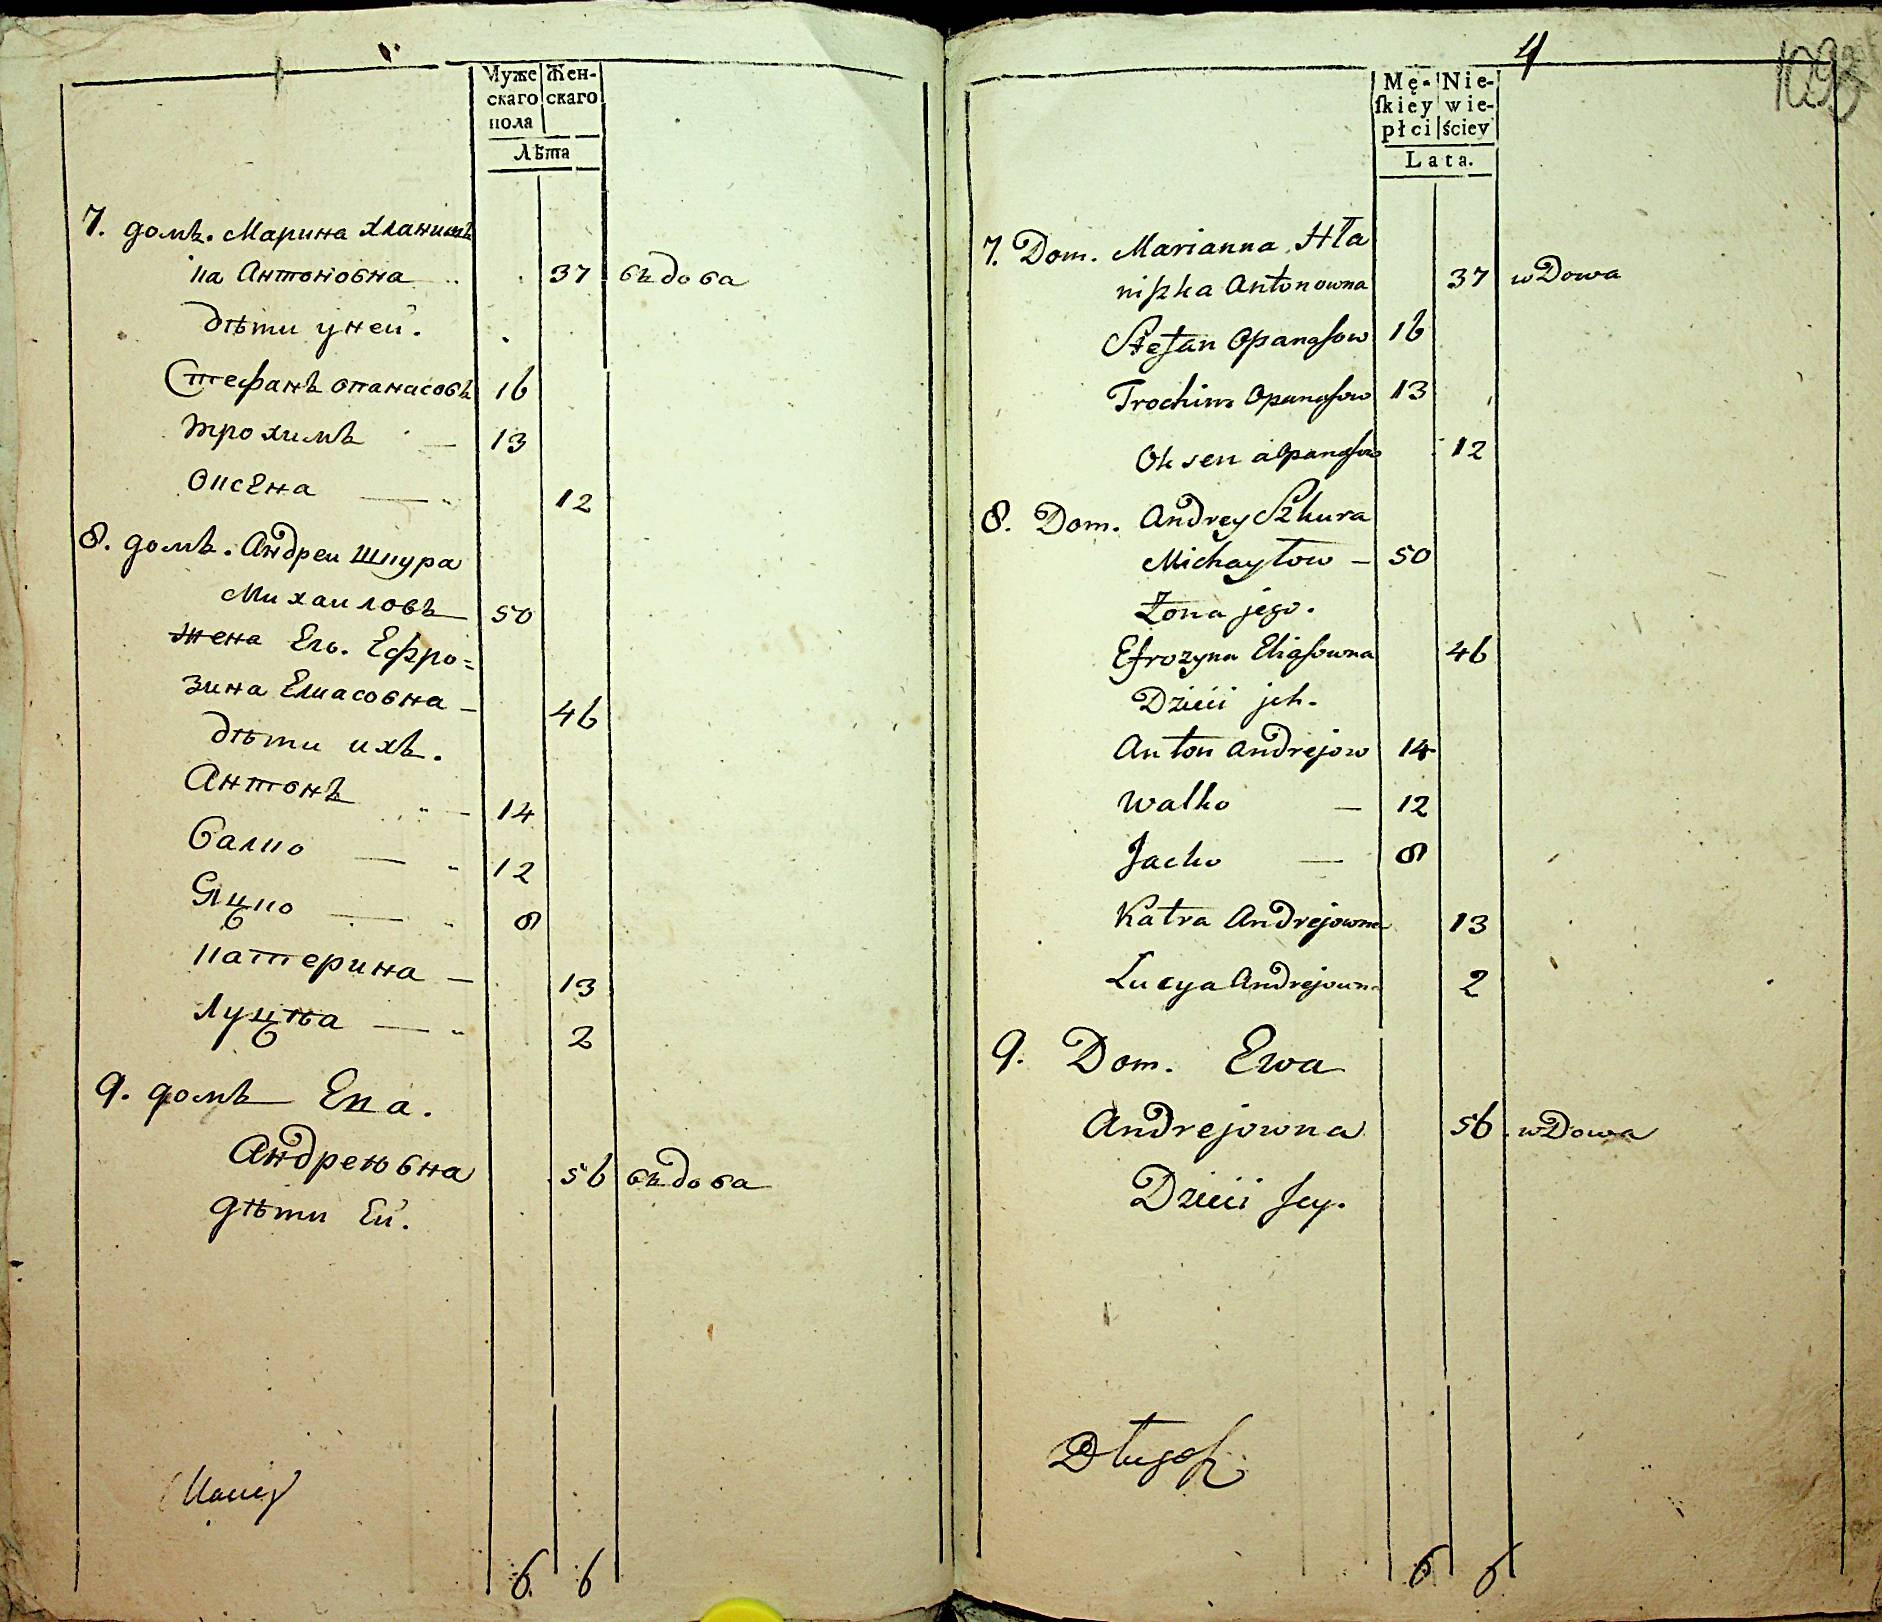 Муже Жен-
скаго скаго
пола
Лѣта
7. домъ. Марина Хланишъ
ка Антоновна 37 въдова
дѣти уней.
Стефанъ опанасовъ 16
трохимъ 13
оксена 12
8. домъ. Андреи Шкура
Михаиловъ 50
жена Его. Ефро=
зина Елиасовна 46
дѣти ихъ.
Антонъ 14
Валко 12
Яцко 8
катерина 13
Луцѣа 2
9. домъ Ева.
Андреювна 56 въдова
дѣти Ей.
Maciej
6 6
4
Mę- Nie-
ſkiey wie-
płci ściey
Lata.
7. Dom. Marianna Hła
niſzka Antonowna 37 wDowa
Stefan Opanaſow 16
Trochim Opanaſow 13
Oksen a Opanaſow 12
8. Dom. Andrey Szkura
Michayłow 50
Żona jego.
Efrozyna Eliaſowna 46
Dzieci jch.
Anton Andrejow 14
Walko 12
Jacko 8
Katra Andrejowna 13
Lucya Andrejowna 2
9. Dom. Ewa
Andrejowna 56 wDowa
Dzieci Jey.
Długoſz
6 6